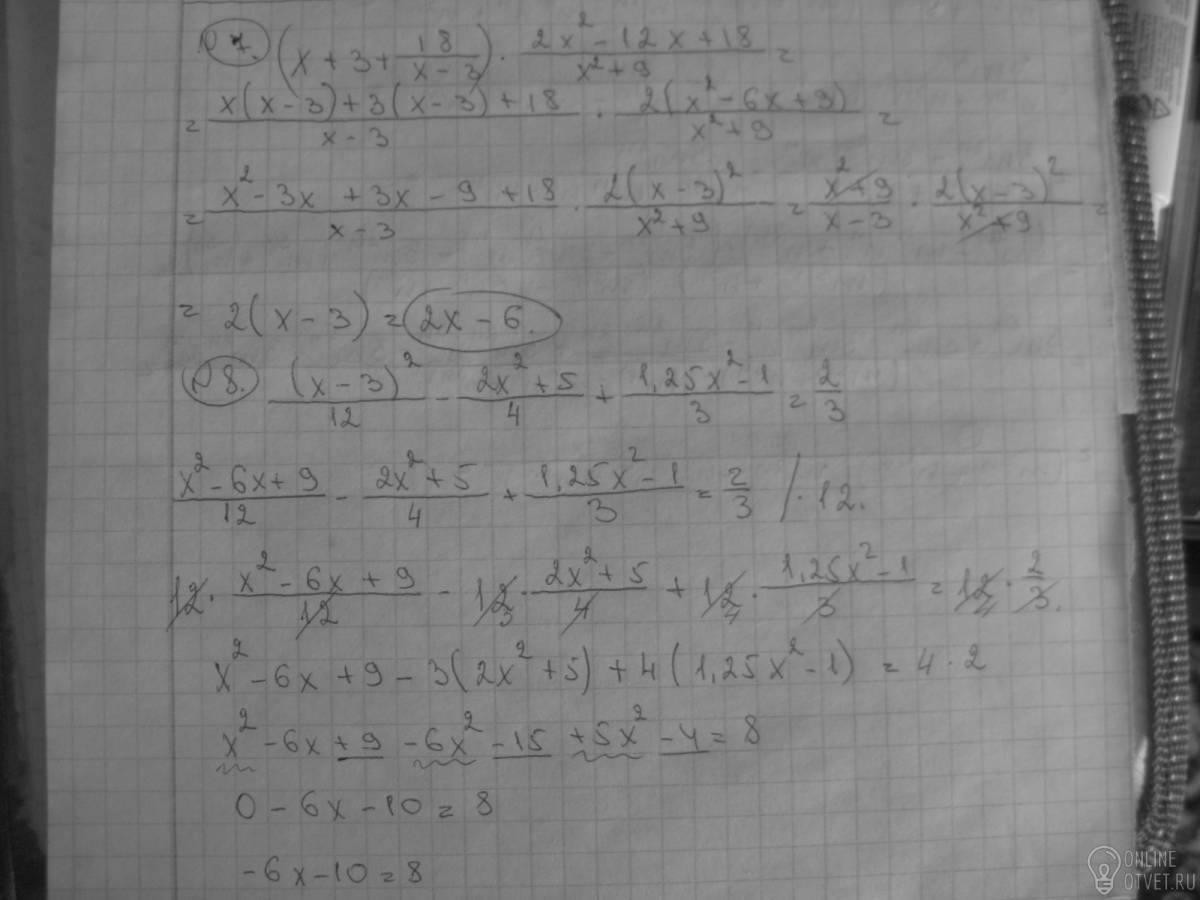 №7. (x + 3 + 18/(x - 3)) · (2x² - 12x + 18)/(x² + 9) =
= (x(x - 3) + 3(x - 3) + 18)/(x - 3) · 2(x² - 6x + 9)/(x² + 9) =
= (x² - 3x + 3x - 9 + 18)/(x - 3) · 2(x - 3)²/(x² + 9) = (x² + 9)/(x - 3) · 2(x - 3)²/(x² + 9) =
= 2(x - 3) = 2x - 6.
№8. (x - 3)²/12 - (2x² + 5)/4 + (1,25x² - 1)/3 = 2/3
(x² - 6x + 9)/12 - (2x² + 5)/4 + (1,25x² - 1)/3 = 2/3 / · 12.
12 · (x² - 6x + 9)/12 - 12 3 · (2x² + 5)/4 + 12 4 · (1,25x² - 1)/3 = 12 4 · 2/3.
x² - 6x + 9 - 3(2x² + 5) + 4(1,25x² - 1) = 4 · 2
x² - 6x + 9 - 6x² - 15 + 5x² - 4 = 8
0 - 6x - 10 = 8
-6x - 10 = 8
ONLINE
OTVET.RU